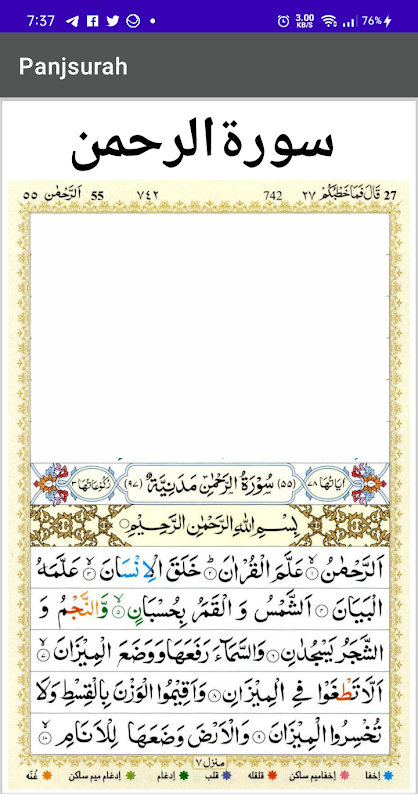 7:37 3.00 KB/S 76%
Panjsurah
سورة الرحمن
27 قَالَ فَمَا خَطْبُكُمْ ٢٧ 742 ٧٤٢ 55 اَلرَّحْمٰن ٥٥
اٰيَاتُهَا ٧٨ (٥٥) سُوْرَةُ الرَّحْمٰنِ مَدَنِيَّةٌ (٩٧) رُكُوْعَاتُهَا ٣
بِسْمِ اللّٰهِ الرَّحْمٰنِ الرَّحِيْمِ
اَلرَّحْمٰنُ ۙ﴿۱﴾ عَلَّمَ الْقُرْاٰنَ ؕ﴿۲﴾ خَلَقَ الْاِنْسَانَ ۙ﴿۳﴾ عَلَّمَهُ
الْبَيَانَ ﴿۴﴾ اَلشَّمْسُ وَ الْقَمَرُ بِحُسْبَانٍ ۙ﴿۵﴾ وَّالنَّجْمُ وَ
الشَّجَرُ يَسْجُدٰنِ ﴿۶﴾ وَالسَّمَآءَ رَفَعَهَا وَوَضَعَ الْمِيْزَانَ ۙ﴿۷﴾
اَلَّا تَطْغَوْا فِي الْمِيْزَانِ ﴿۸﴾ وَاَقِيْمُوا الْوَزْنَ بِالْقِسْطِ وَلَا
تُخْسِرُوا الْمِيْزَانَ ﴿۹﴾ وَالْاَرْضَ وَضَعَهَا لِلْاَنَامِ ۙ﴿۱۰﴾
منزل ٧
اخفا اخفا میم ساکن قلقله قلب ادغام ادغام میم ساکن غنّه